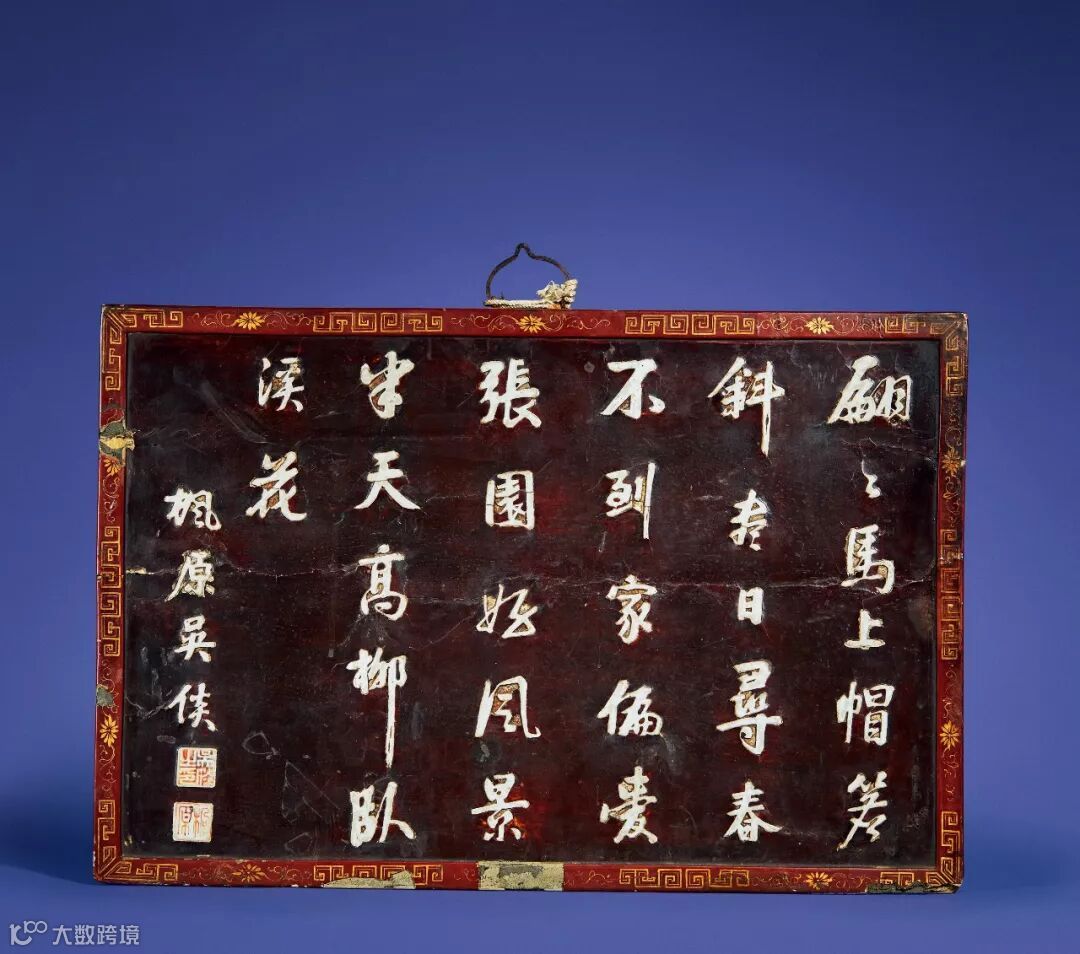 翩〻馬上帽簷
斜盡日尋春
不到家偏愛
張園好風景
半天高柳臥
溪花
楓原吳
大数跨境